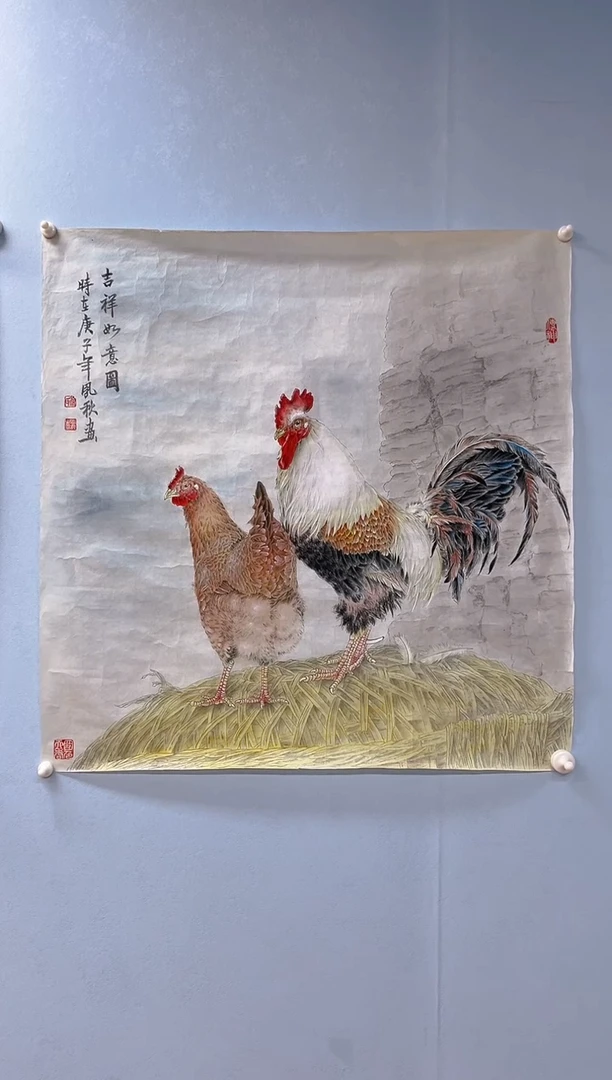 吉祥如意圖
時在庚子年風秋畫